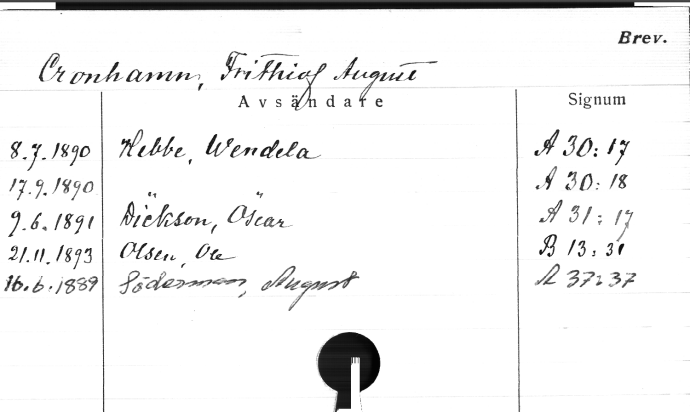 Brev.
Cronhamn, Frithiof August
Avsändare Signum
8.7.1890 Hebbe, Wendela A 30:17
17.9.1890 " " A 30:18
9.6.1891 Dickson, Oscar A 31:17
21.11.1893 Olsen, Ole B 13:31
16.6.1889 Söderman, August A 37:37